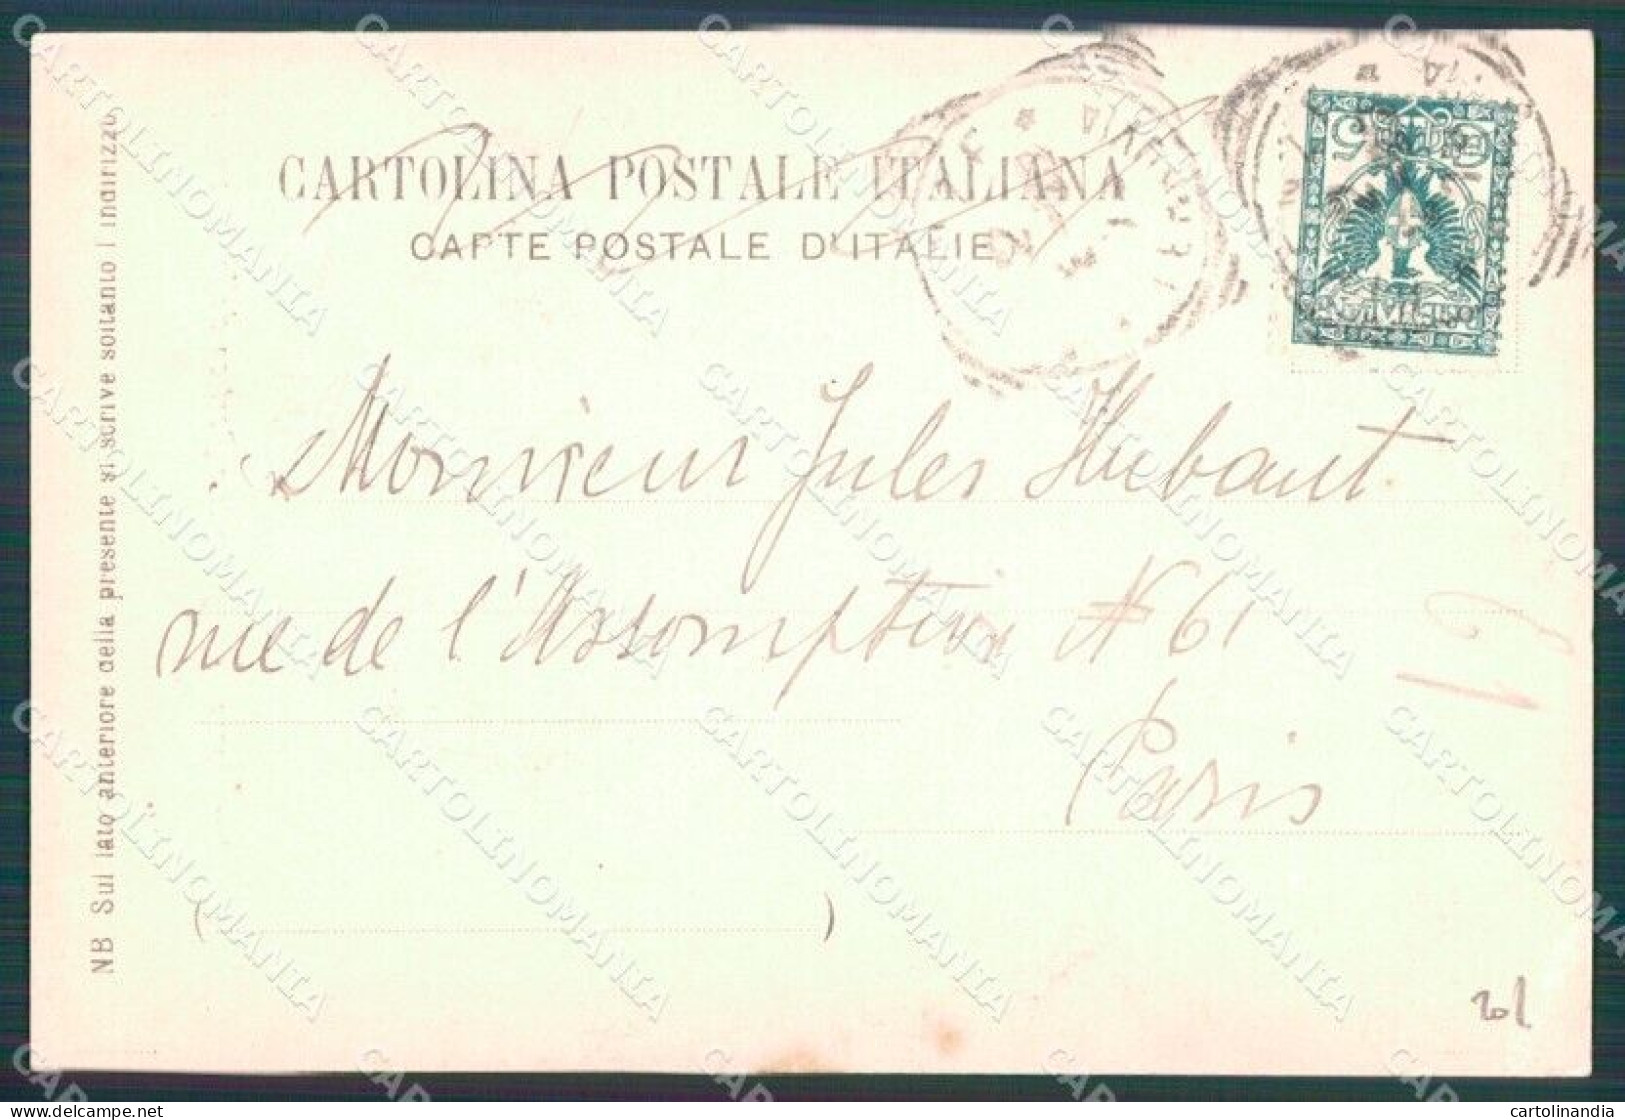 CARTOLINA POSTALE ITALIANA
CARTE POSTALE D'ITALIE
NB Sul lato anteriore della presente si scrive soltanto l indirizzo
Monsieur Jules Hubaut
rue de l'Assomption N 61
Paris
61
201
CARTOLINOMANIA
cartolinandia